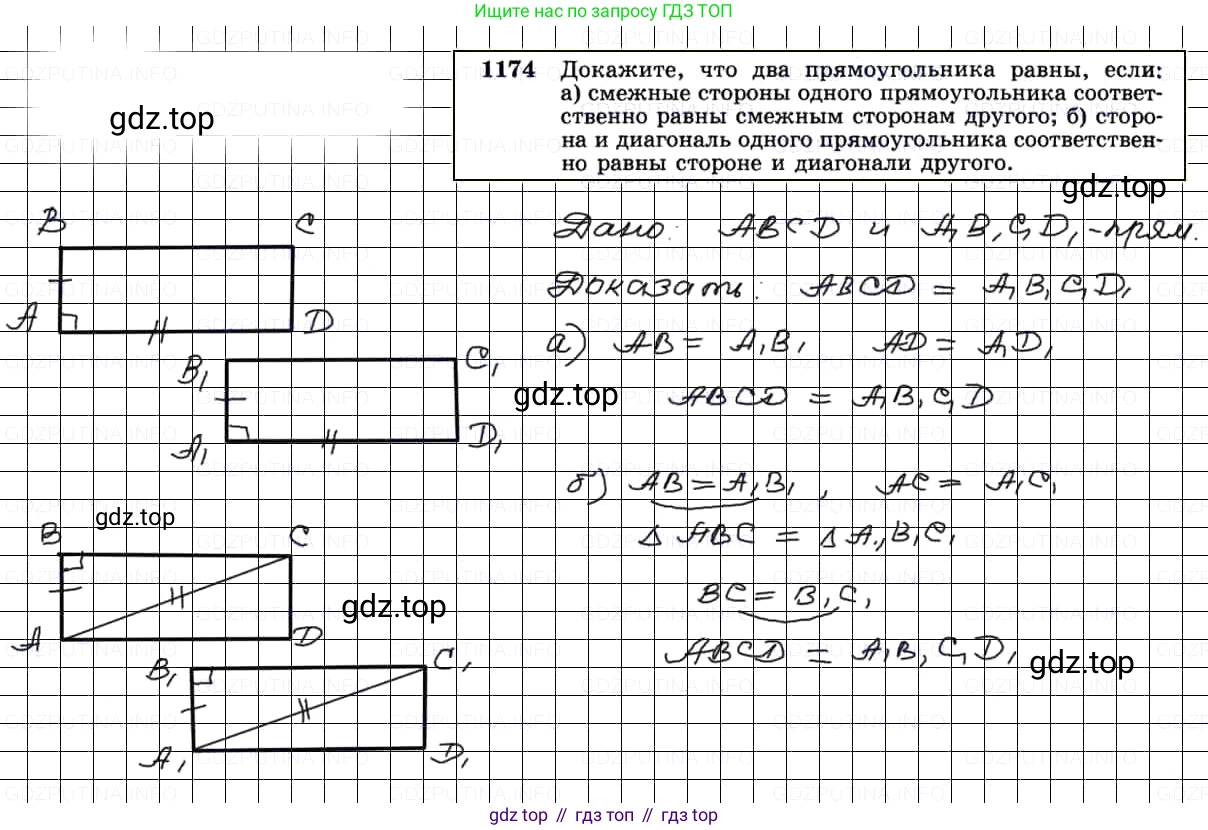 Ищите нас по запросу ГДЗ ТОП
1174 Докажите, что два прямоугольника равны, если:
а) смежные стороны одного прямоугольника соответ-
ственно равны смежным сторонам другого; б) сторо-
на и диагональ одного прямоугольника соответствен-
но равны стороне и диагонали другого.
gdz.top
gdz.top
B C
A D
B₁ C₁
A₁ D₁
Дано: ABCD и A₁B₁C₁D₁ - прям.
Доказать: ABCD = A₁B₁C₁D₁
а) AB = A₁B₁ AD = A₁D₁
gdz.top
ABCD = A₁B₁C₁D
б) AB = A₁B₁, AC = A₁C₁
gdz.top
B C
A D
△ ABC = △ A₁B₁C₁
gdz.top
BC = B₁C₁
ABCD = A₁B₁C₁D₁
gdz.top
B₁ C₁
A₁ D₁
gdz top // гдз топ // gdz top
GDZPUTINA.INFO